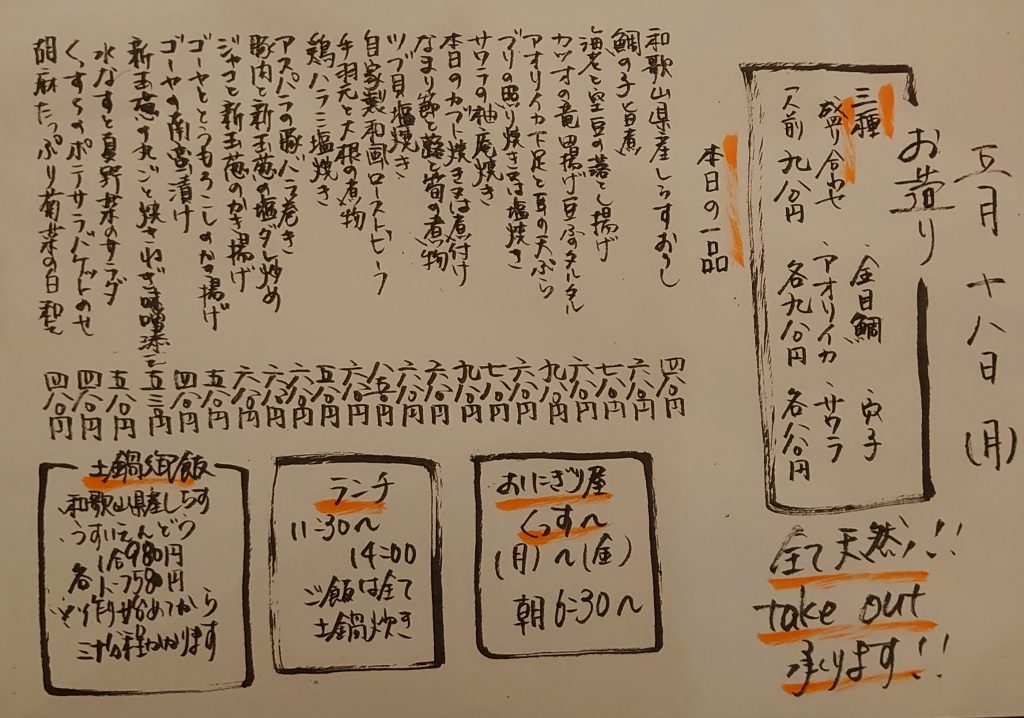 五月十八日(月)
お造り
三種
盛り合せ
一人前 九八〇円
金目鯛
アオリイカ
各九八〇円
穴子
サワラ
各八八〇円
全て天然!!
take out
承ります!!
本日の一品
和歌山県産しらすおろし 四八〇円
鯛の子旨煮 六八〇円
海老と空豆の落とし揚げ 七八〇円
カツオの竜田揚げ豆腐のタルタル 六八〇円
アオリイカ下足と耳の天ぷら 九八〇円
ブリの照り焼き又は塩焼き 六八〇円
サワラの柚庵焼き 七八〇円
本日のカブト焼き又は煮付け 九八〇円
なまり節と蕗筍の煮物 六八〇円
ツブ貝塩焼き 六八〇円
自家製和風ローストビーフ 八五〇円
手羽元と大根の煮物 六八〇円
鶏ハラミ塩焼き 五八〇円
アスパラの豚バラ巻き 六八〇円
豚肉と新玉葱の塩ダレ炒め 六八〇円
ジャコと新玉葱のかき揚げ 六八〇円
ゴーヤととうもろこしのかき揚げ 五八〇円
ゴーヤの南蛮漬け 四八〇円
新玉葱の丸ごと焼きねぎ味噌添え 五三〇円
水なすと夏野菜のサラダ 五八〇円
くっす〜のポテサラバゲットのせ 四八〇円
胡麻たっぷり菊菜の白和え 四八〇円
おにぎり屋
くっす〜
(月)〜(金)
朝6:30〜
ランチ
11:30〜
14:00
ご飯は全て
土鍋炊き
土鍋御飯
和歌山県産しらす
うすいえんどう
各 1合980円
ハーフ580円
作り始めてから
三十分程かかります